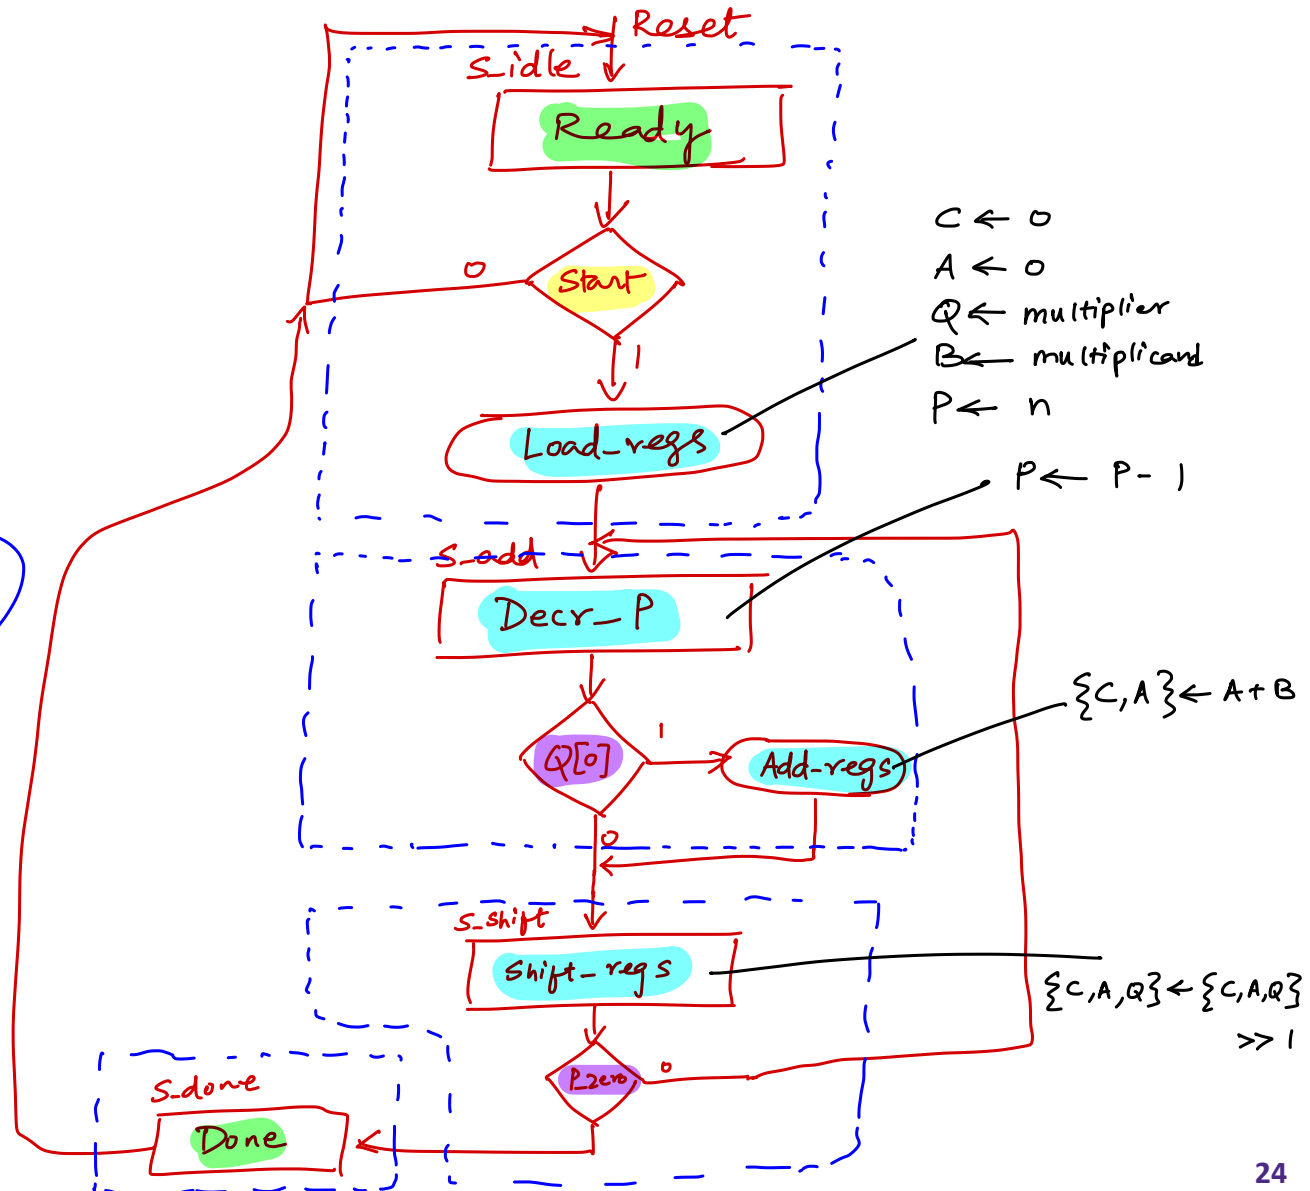 Reset
S_idle
Ready
Start
0
1
Load_regs
C ← 0
A ← 0
Q ← multiplier
B ← multiplicand
P ← n
P ← P - 1
S_add
Decr_P
Q[0]
1
0
Add_regs
{C,A} ← A + B
S_shift
Shift_regs
{C,A,Q} ← {C,A,Q}
>> 1
P_zero
0
S_done
Done
24